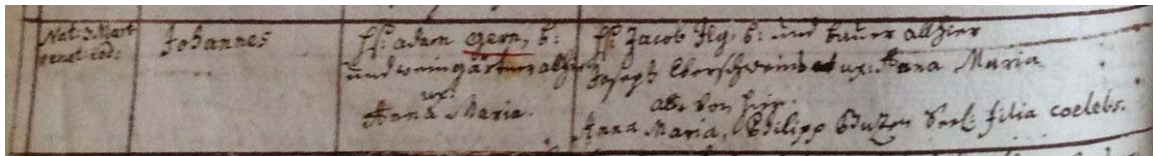 Nat: 3. Mart
renat: eod:
Johannes
H: Adam Gern, b:
und weingärtner alhier
ux:
Anna Maria.
H: Jacob Ilg, b: und bauer alhier
Joseph Eberschwein et ux: Anna Maria
alle von hier.
Anna Maria, Philipp Seel: filia coelebs.